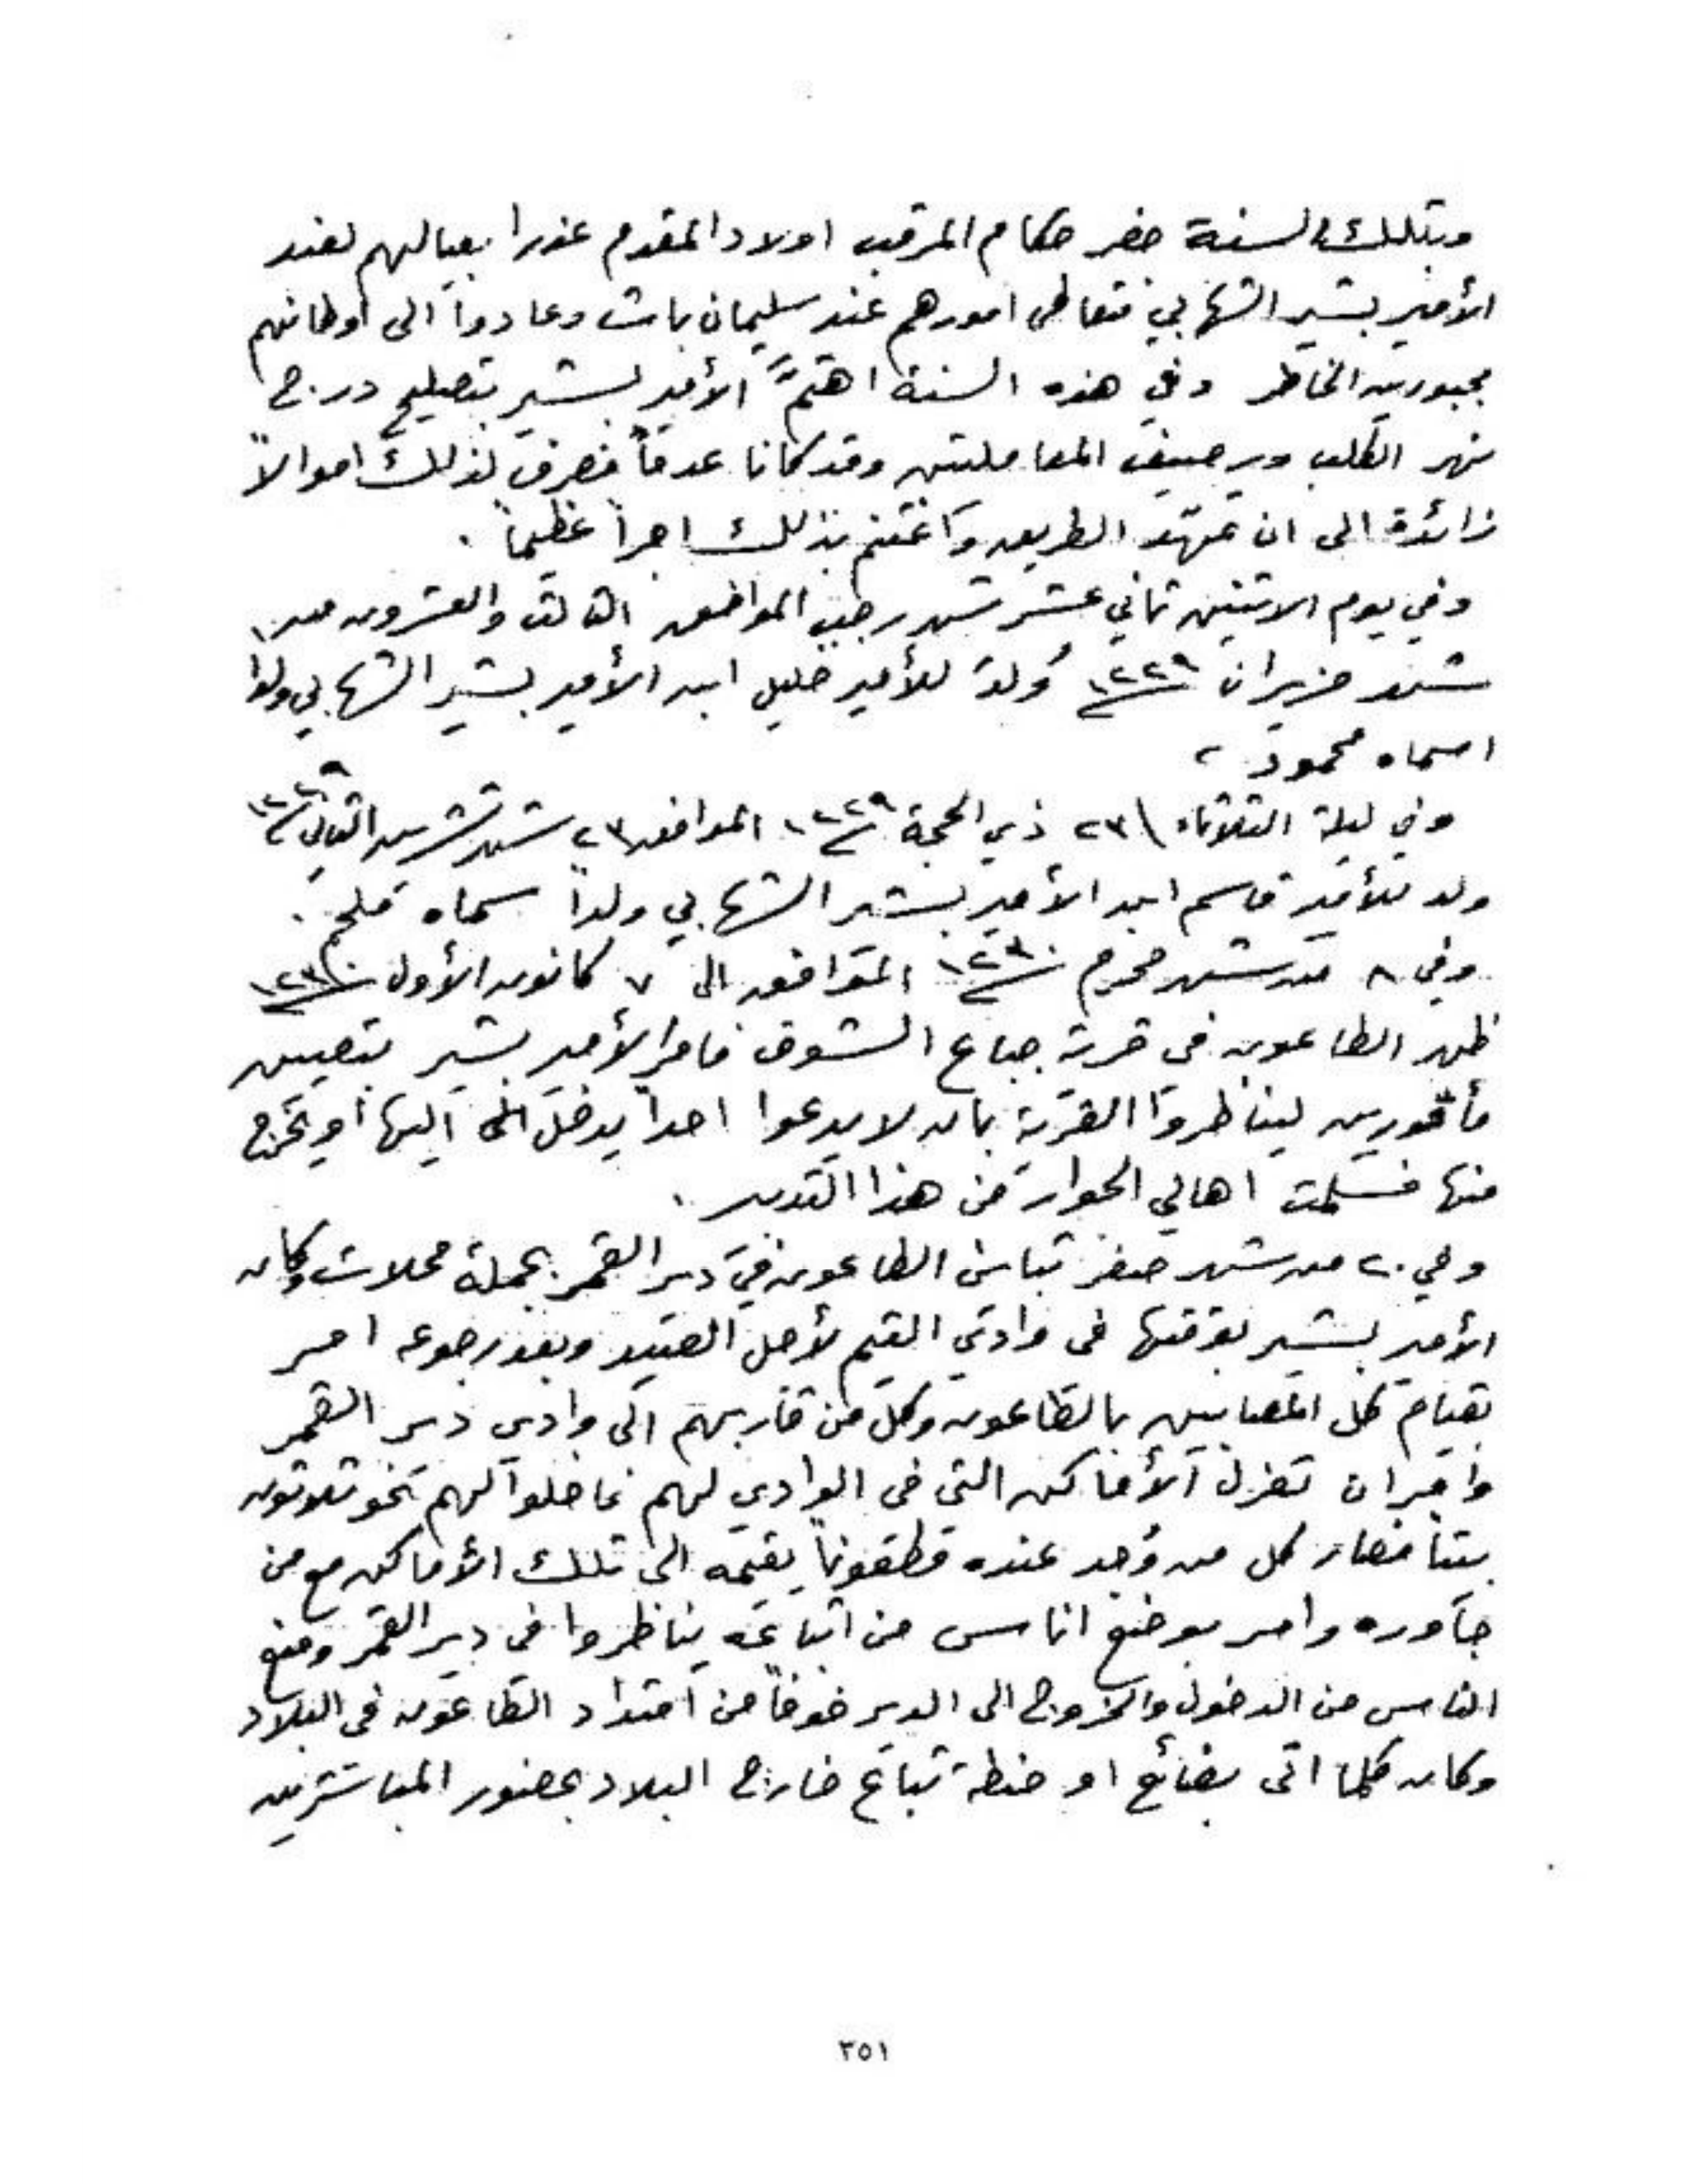 وبتلك السنة حضر حكام المرقب اولاد المقدم عذرا بعيالهم لعند
الأمير بشير الشهابي فتعاطى امورهم عند سليمان باشا وعادوا الى اوطانهم
مجبورين الخاطر وفي هذه السنة اهتمّ الأمير بشير بتصليح درج
نهر الكلب ورصيف المعاملتين وقد كانا عدماً فصرف لذلك اموالاً
زائدة الى ان تمهّد الطريق واغتنم بذلك اجراً عظيماً .
وفي يوم الاثنين ثاني عشر شهر رجب الموافق الثالث والعشرون من
شهر حزيران ١٢٢٩ وُلد للأمير خليل ابن الأمير بشير الشهابي ولداً
اسماه محمود ،
وفي ليلة الثلاثاء ٢٣ ذي الحجة ١٢٢٩ الموافق ٢٣ شهر تشرين الثاني ١٢٢٩
ولد للأمير قاسم ابن الأمير بشير الشهابي ولداً سماه
وفي ٨ من شهر محرم ١٢٣٠ الموافق الى ٧ كانون الأول ١٢٣٠
ظهر الطاعون في قرية جباع الشوف فامر الأمير بشير بتعيين
مأمورين ليناظروا القرية بان لا يدعوا احداً يدخل الى اليها او يخرج
منها فسلمت اهالي الجوار من هذا التدبير .
وفي ٢٠ من شهر صفر تباين الطاعون في دير القمر بجملة محلات وكان
الأمير بشير بوقتها في وادي التيم لأجل الصيد وبعد رجوعه امر
بقيام كل المصابين بالطاعون وكل من قاربهم الى وادي دير القمر
وامر ان تعزل الأماكن التي في الوادي لهم فاخلوا لهم نحو ثلاثون
بيتاً فصار كل من وُجد عنده مطعوناً يقيمه الى تلك الأماكن مع من
جاوره وامر بوضع اناس من اتباعه يناظروا في دير القمر ومنع
الناس من الدخول والخروج الى الدير خوفاً من امتداد الطاعون في البلاد
وكان كلما اتى بضائع او حنطة تباع خارج البلاد بحضور المباشرين
٣٥١